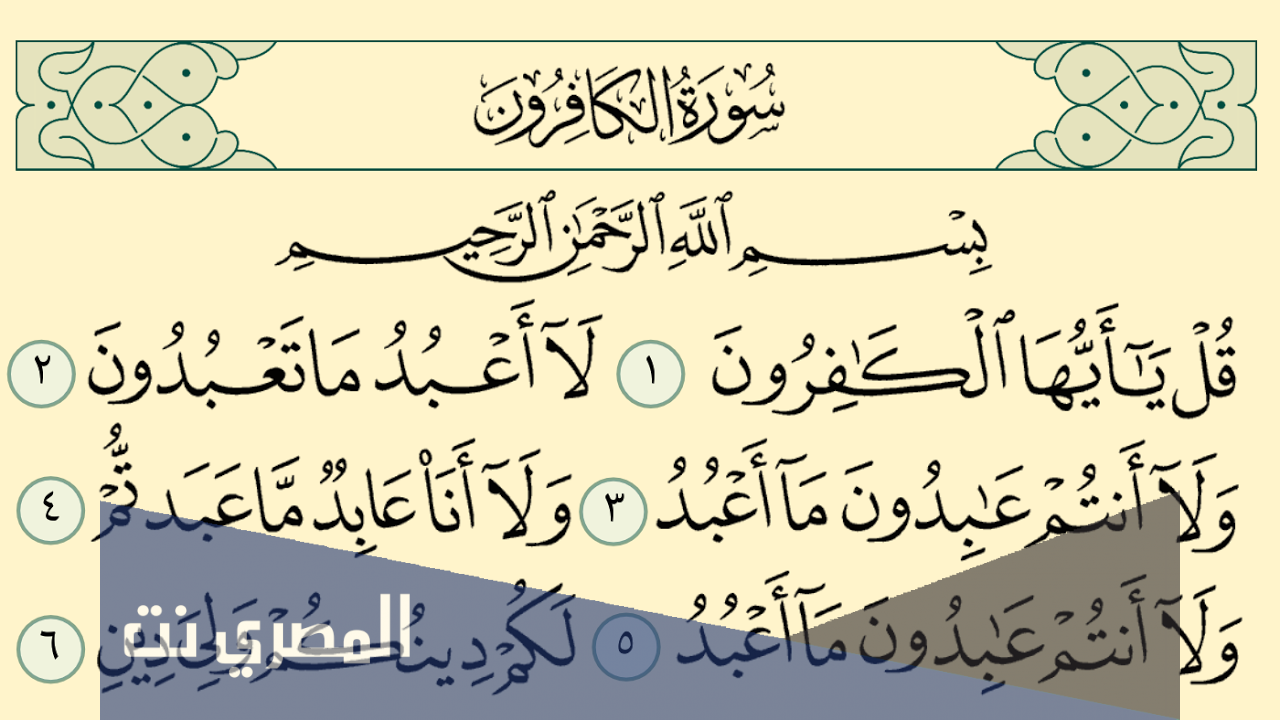 سُورَةُ الكَافِرُونَ
بِسْمِ ٱللَّهِ ٱلرَّحْمَٰنِ ٱلرَّحِيمِ
قُلْ يَٰٓأَيُّهَا ٱلْكَٰفِرُونَ ١ لَآ أَعْبُدُ مَا تَعْبُدُونَ ٢
وَلَآ أَنتُمْ عَٰبِدُونَ مَآ أَعْبُدُ ٣ وَلَآ أَنَا۠ عَابِدٌ مَّا عَبَدتُّمْ ٤
وَلَآ أَنتُمْ عَٰبِدُونَ مَآ أَعْبُدُ ٥ لَكُمْ دِينُكُمْ وَلِىَ دِينِ ٦
المصري نت